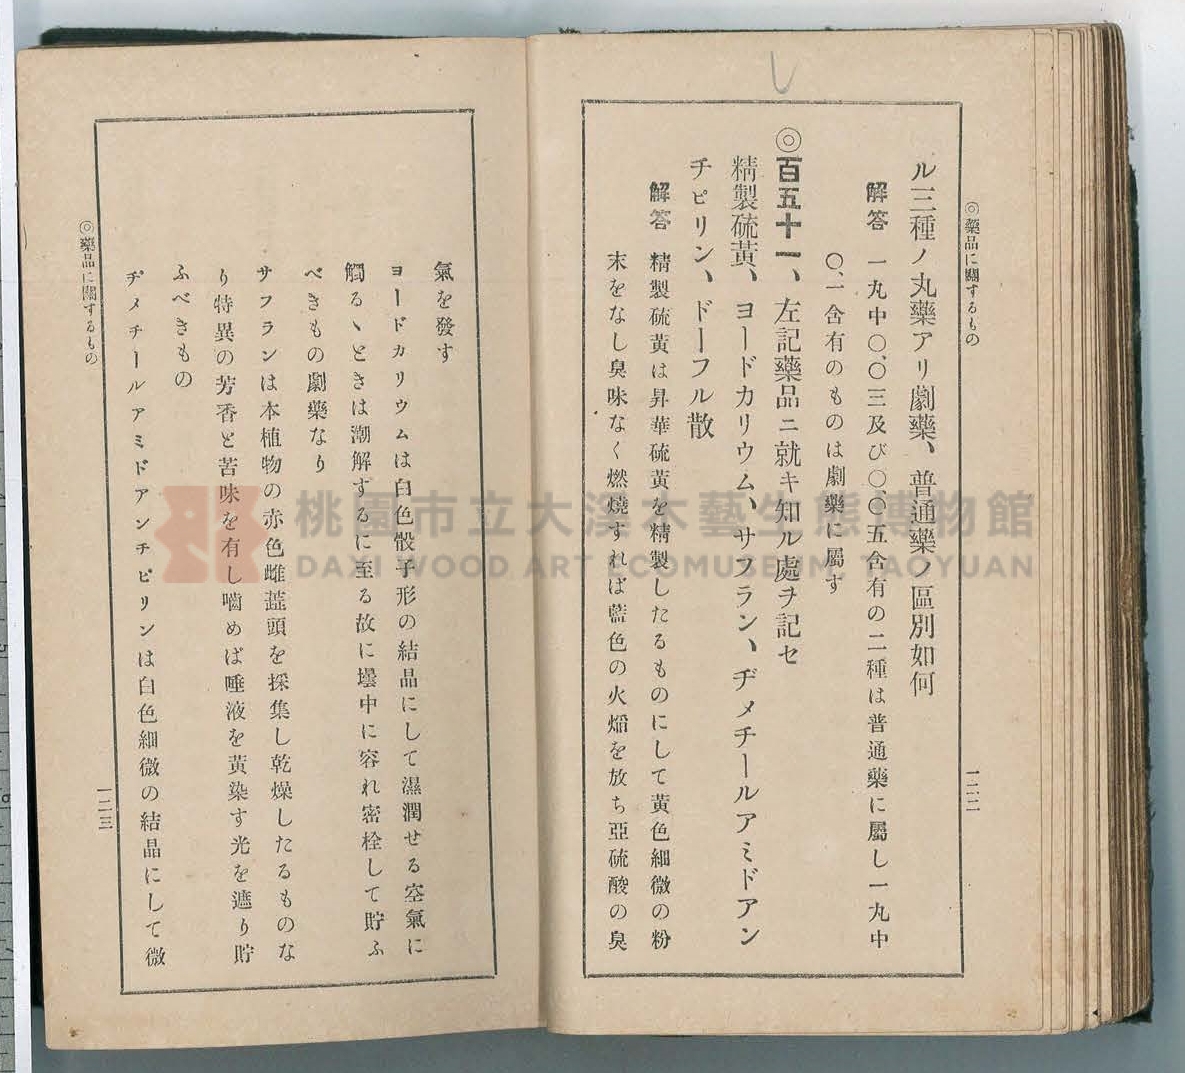 ◎藥品に關するもの
一二二
ル三種ノ丸藥アリ劇藥、普通藥ノ區別如何
解答 一丸中〇、〇三及び〇、〇五含有の二種は普通藥に屬し一丸中
〇、一含有のものは劇藥に屬す
◎百五十一、左記藥品ニ就キ知ル處ヲ記セ
精製硫黃、ヨードカリウム、サフラン、ヂメチールアミドアン
チピリン、ドーフル散
解答 精製硫黃は昇華硫黃を精製したるものにして黃色細微の粉
末をなし臭味なく燃燒すれば藍色の火焔を放ち亞硫酸の臭
氣を發す
ヨードカリウムは白色骰子形の結晶にして濕潤せる空氣に
觸るヽときは潮解するに至る故に壜中に容れ密栓して貯ふ
べきもの劇藥なり
サフランは本植物の赤色雌蕋頭を採集し乾燥したるものな
り特異の芳香と苦味を有し嚙めば唾液を黃染す光を遮り貯
ふべきもの
ヂメチールアミドアンチピリンは白色細微の結晶にして微
◎藥品に關するもの
一二三
桃園市立大溪木藝生態博物館
DAXI WOOD ART ECOMUSEUM, TAOYUAN